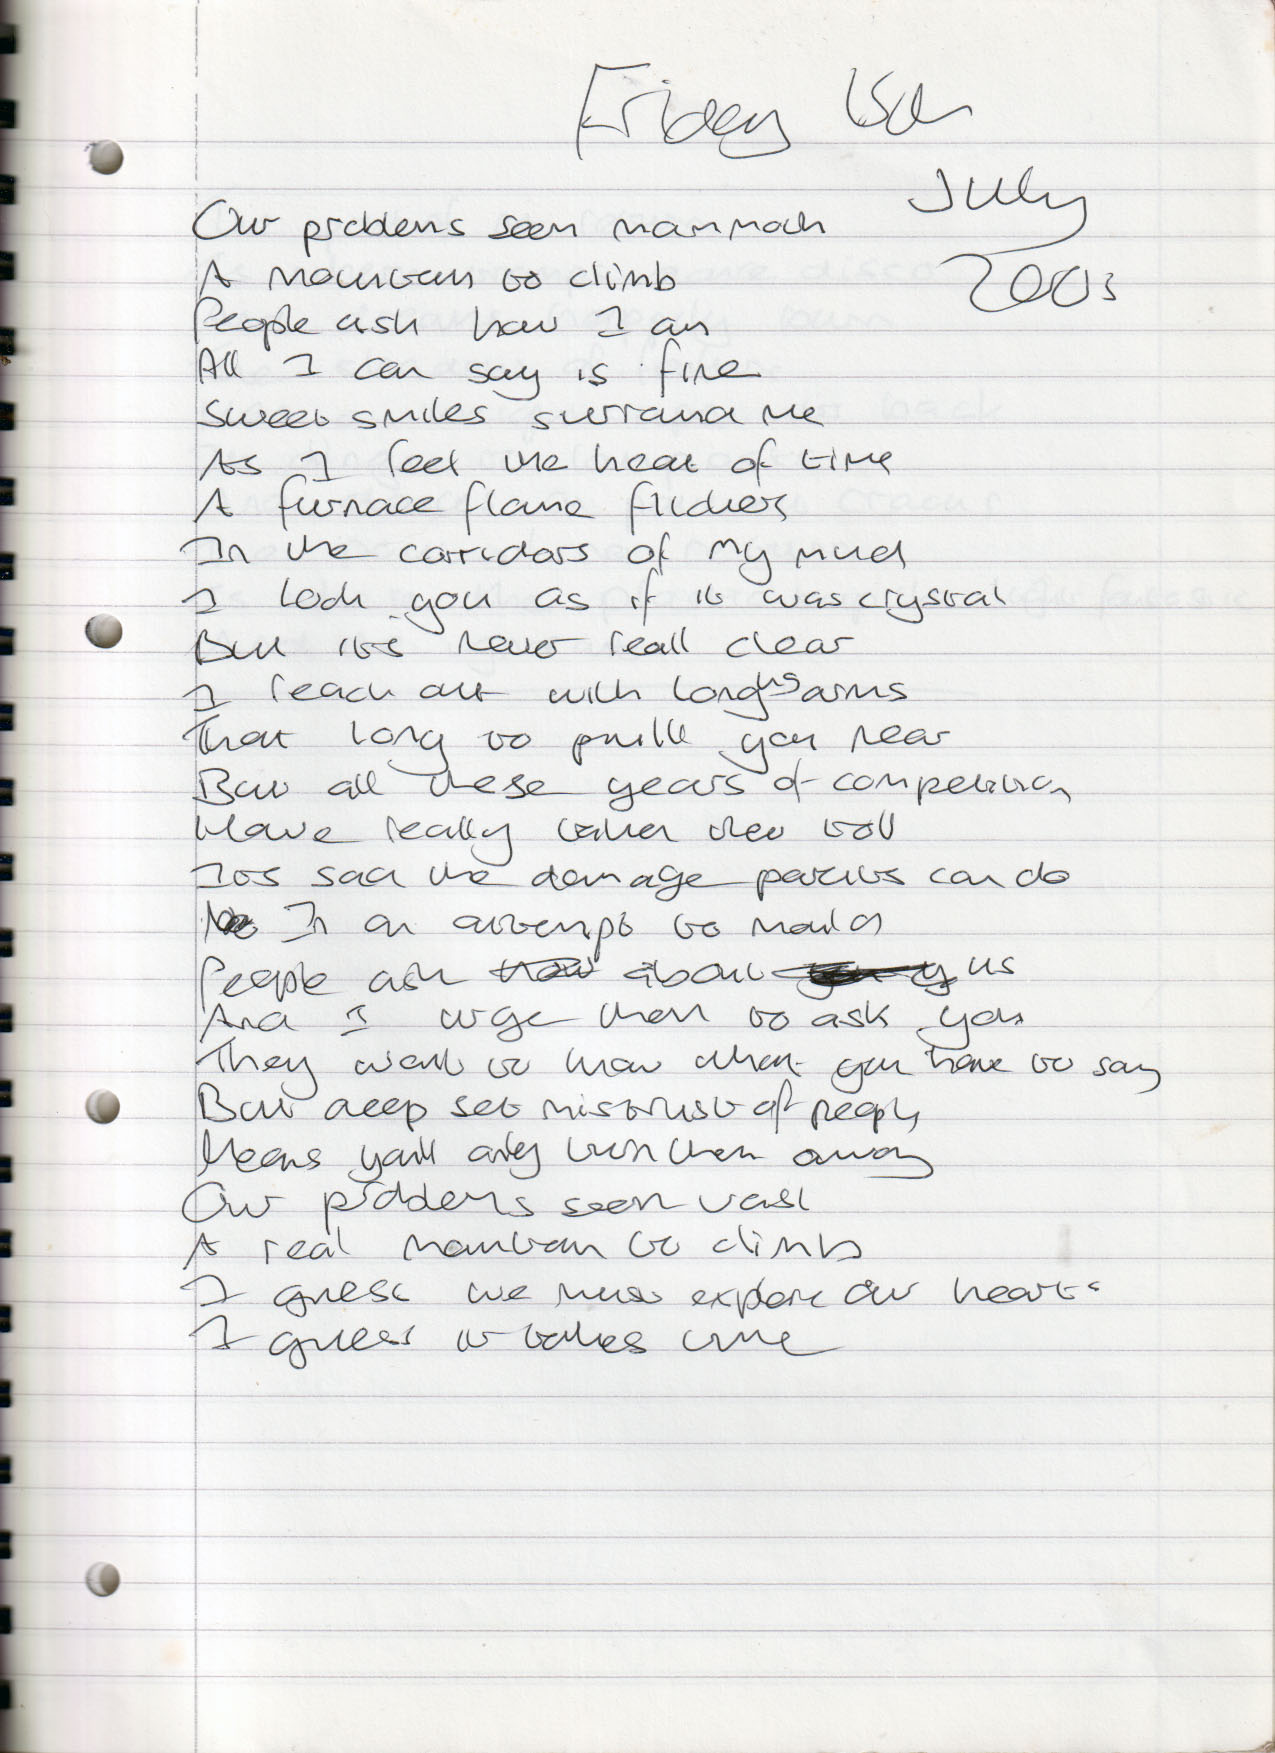 Friday 15th
July
2005
Our problems seem mammoth
A mountain to climb
People ask how I am
All I can say is fine
Sweet smiles surround me
As I feel the heat of time
A furnace flame flickers
In the corridors of my mind
I look you as if it was crystal
But its never reall clear
I reach out with longing arms
That long to pull you near
But all these years of competition
Have really taken their toll
Its sad the damage parents can do
In an attempt to mould
People ask how about us
And I urge them to ask you
They want to know what you have to say
But deep set mistrust of people
Means youll only turn them away
Our problems seem vast
A real mountain to climb
I guess we must explore our hearts
I guess it takes time